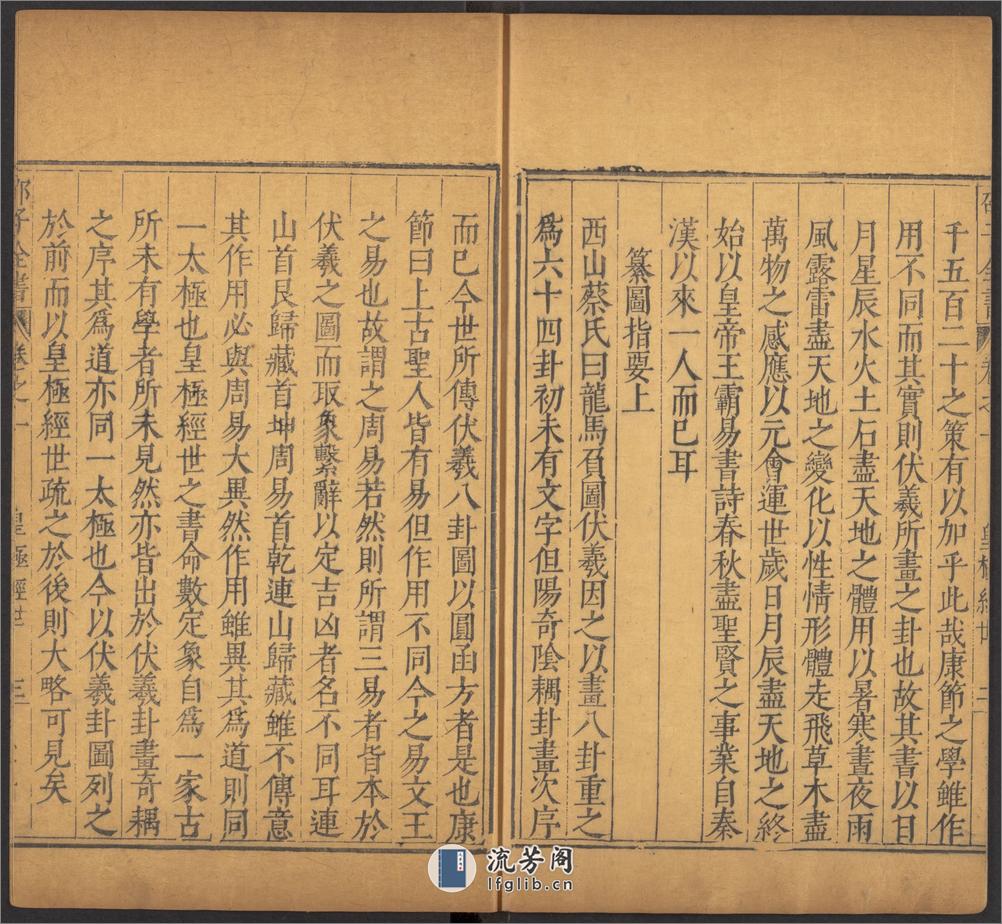 千五百二十之策有以加乎此哉康節之學雖作
用不同而其實則伏羲所畫之卦也故其書以日
月星辰水火土石盡天地之體用以暑寒晝夜雨
風露雷盡天地之變化以性情形體走飛草木盡
萬物之感應以元會運世歲日月辰盡天地之終
始以皇帝王霸易書詩春秋盡聖賢之事業自秦
漢以來一人而已耳
纂圖指要上
西山蔡氏曰龍馬負圖伏羲因之以畫八卦重之
爲六十四卦初未有文字但陽奇陰耦卦畫次序
而已今世所傳伏羲八卦圖以圓函方者是也康
節曰上古聖人皆有易但作用不同今之易文王
之易也故謂之周易若然則所謂三易者皆本於
伏羲之圖而取象繫辭以定吉凶者名不同耳連
山首艮歸藏首坤周易首乾連山歸藏雖不傳意
其作用必與周易大異然作用雖異其爲道則同
一太極也皇極經世之書命數定象自爲一家古
所未有學者所未見然亦皆出於伏羲卦畫奇耦
之序其爲道亦同一太極也今以伏羲卦圖列之
於前而以皇極經世疏之於後則大略可見矣
邵子全書 卷之一 皇極經世 三
流芳阁
lfglib.cn